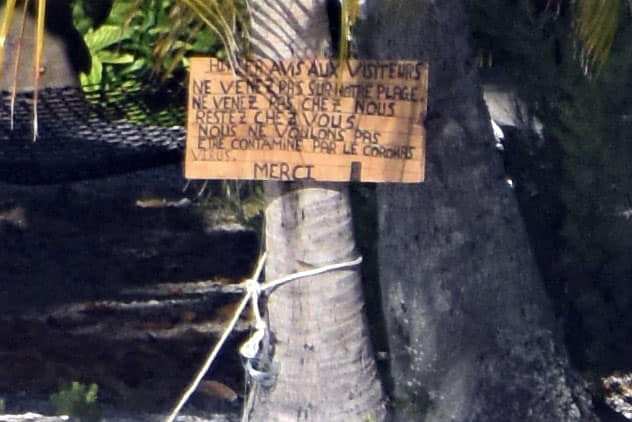 AVIS AUX VISITEURS
NE VENEZ PAS SUR NOTRE PLAGE.
NE VENEZ PAS CHEZ NOUS
RESTEZ CHEZ VOUS
NOUS NE VOULONS PAS
ETRE CONTAMINÉ PAR LE CORONAS
VIRUS.
MERCI